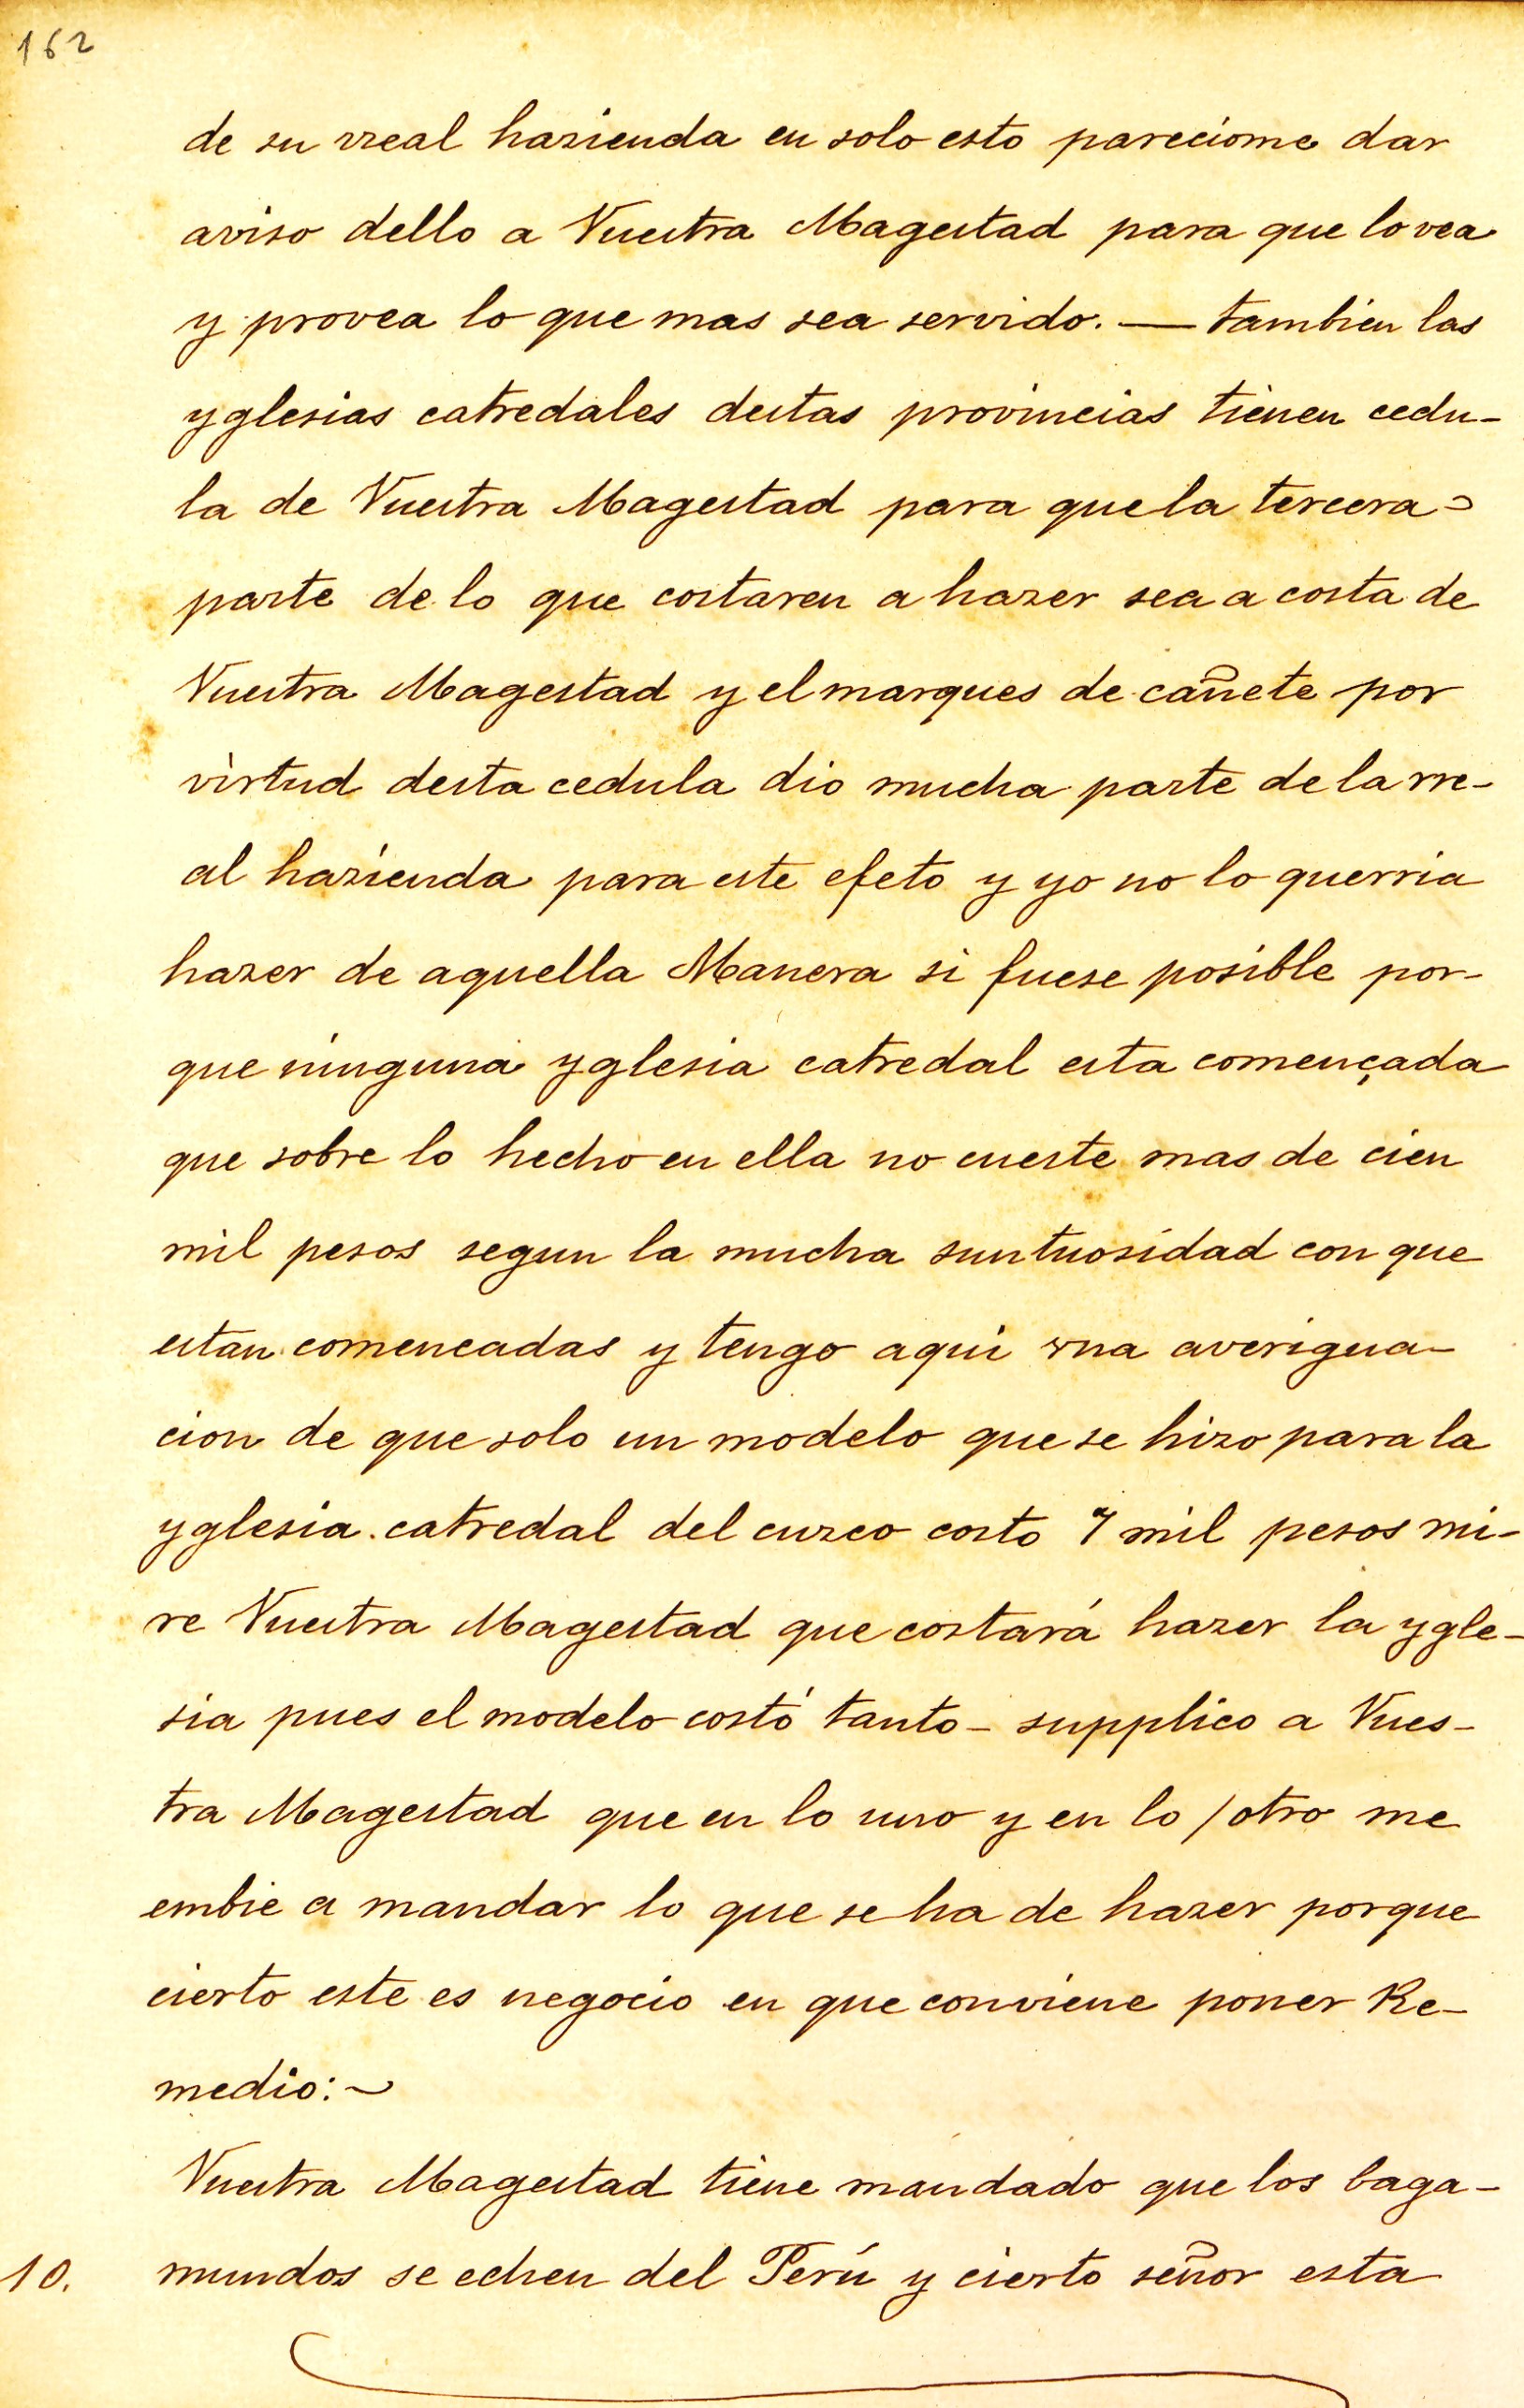 162
de su rreal hazienda en solo esto pareciome dar
aviso dello a Vuestra Magestad para que lo vea
y provea lo que mas sea servido. — tambien las
yglesias catredales destas provincias tienen cedu-
la de Vuestra Magestad para que la tercera=
parte de lo que costaren a hazer sea a costa de
Vuestra Magestad y el marques de cañete por
virtud desta cedula dio mucha parte de la rre-
al hazienda para este efeto y yo no lo querria
hazer de aquella Manera si fuese posible por-
que ninguna yglesia catredal esta començada
que sobre lo hecho en ella no cueste mas de cien
mil pesos segun la mucha suntuosidad con que
estan comencadas y tengo aqui vna averigua-
cion de que solo un modelo que se hizo para la
yglesia catredal del cuzco costo 7 mil pesos mi-
re Vuestra Magestad que costará hazer la ygle-
sia pues el modelo costó tanto - supplico a Vues-
tra Magestad que en lo uno y en lo / otro me
embie a mandar lo que se ha de hazer porque
cierto este es negocio en que conviene poner Re-
medio:~
Vuestra Magestad tiene mandado que los baga-
10. mundos se echen del Perú y cierto señor esta